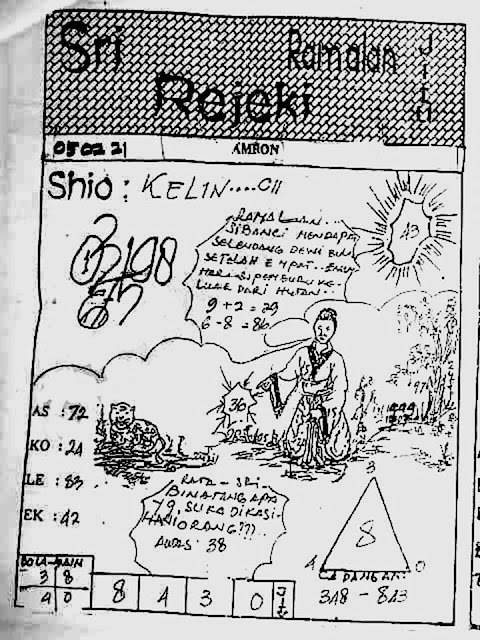 Sri
Ramalan
Jitu
Rejeki
050221
AMRON
Shio : KELINCI
RAMALAN...
SIBANCI MENDAPAT
SELENDANG DEWI BUMI
SETELAH EMPAT..ENAM
HARI SI PEMBURU KE-
LUAR DARI HUTAN..
9 + 2 = 29
6 - 8 = 86
43
36
AS : 72
KO : 24
LE : 83
EK : 42
RATA - SRI
BINATANG APA
YG. SUKA DIKASI-
HANI ORANG???
AWAS: 38
3
8
4
0
CADANGAN:
348 - 843
BOLA-MAIN
3 8
4 0
8 4 3 0
JITU